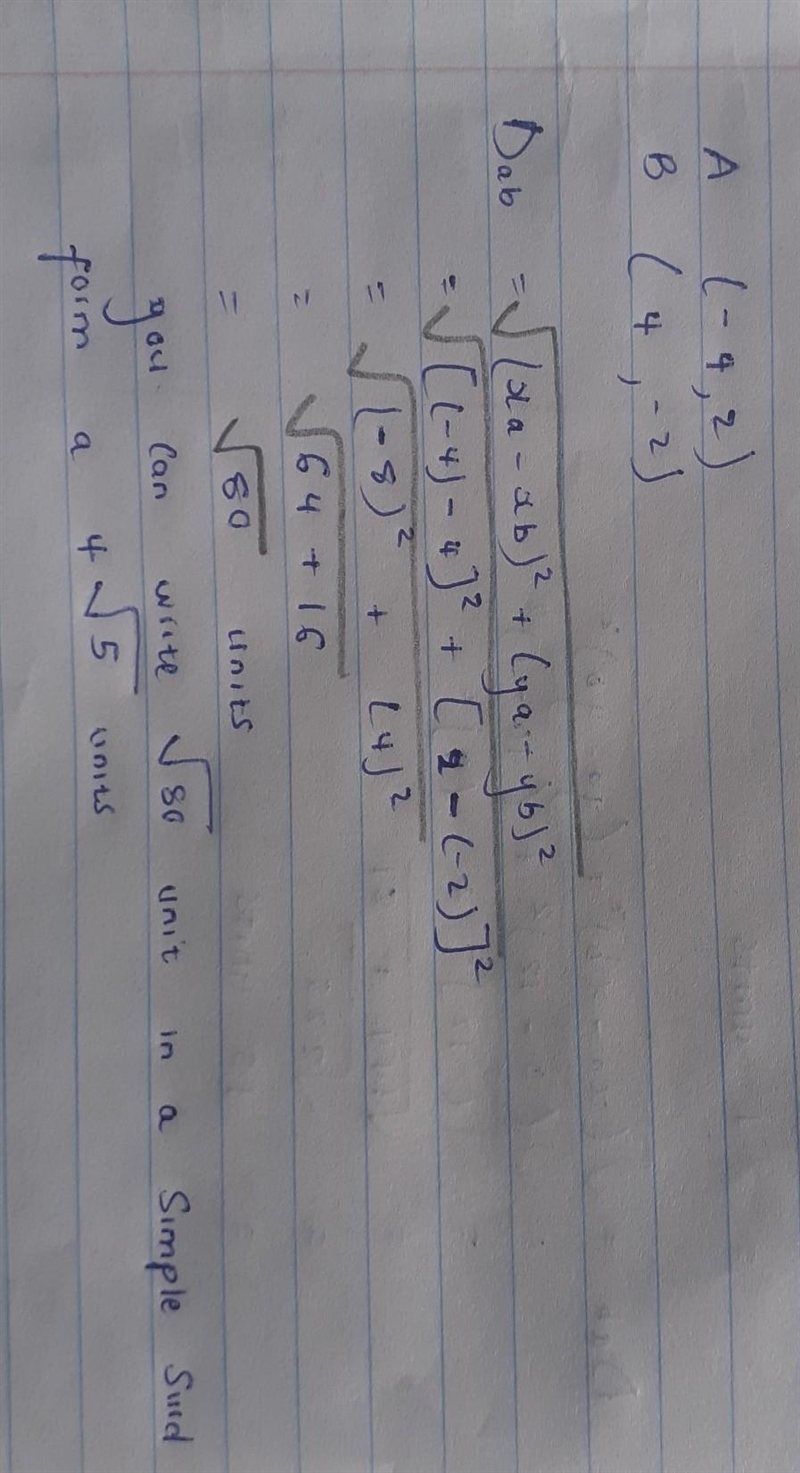 A (-4, 2)
B (4, -2)
Dab = √(xa - xb)² + (ya - yb)²
= √[(-4) - 4]² + [2 - (-2)]²
= √(-8)² + (4)²
= √64 + 16
= √80 units
you can write √80 unit in a simple surd
form a 4√5 units